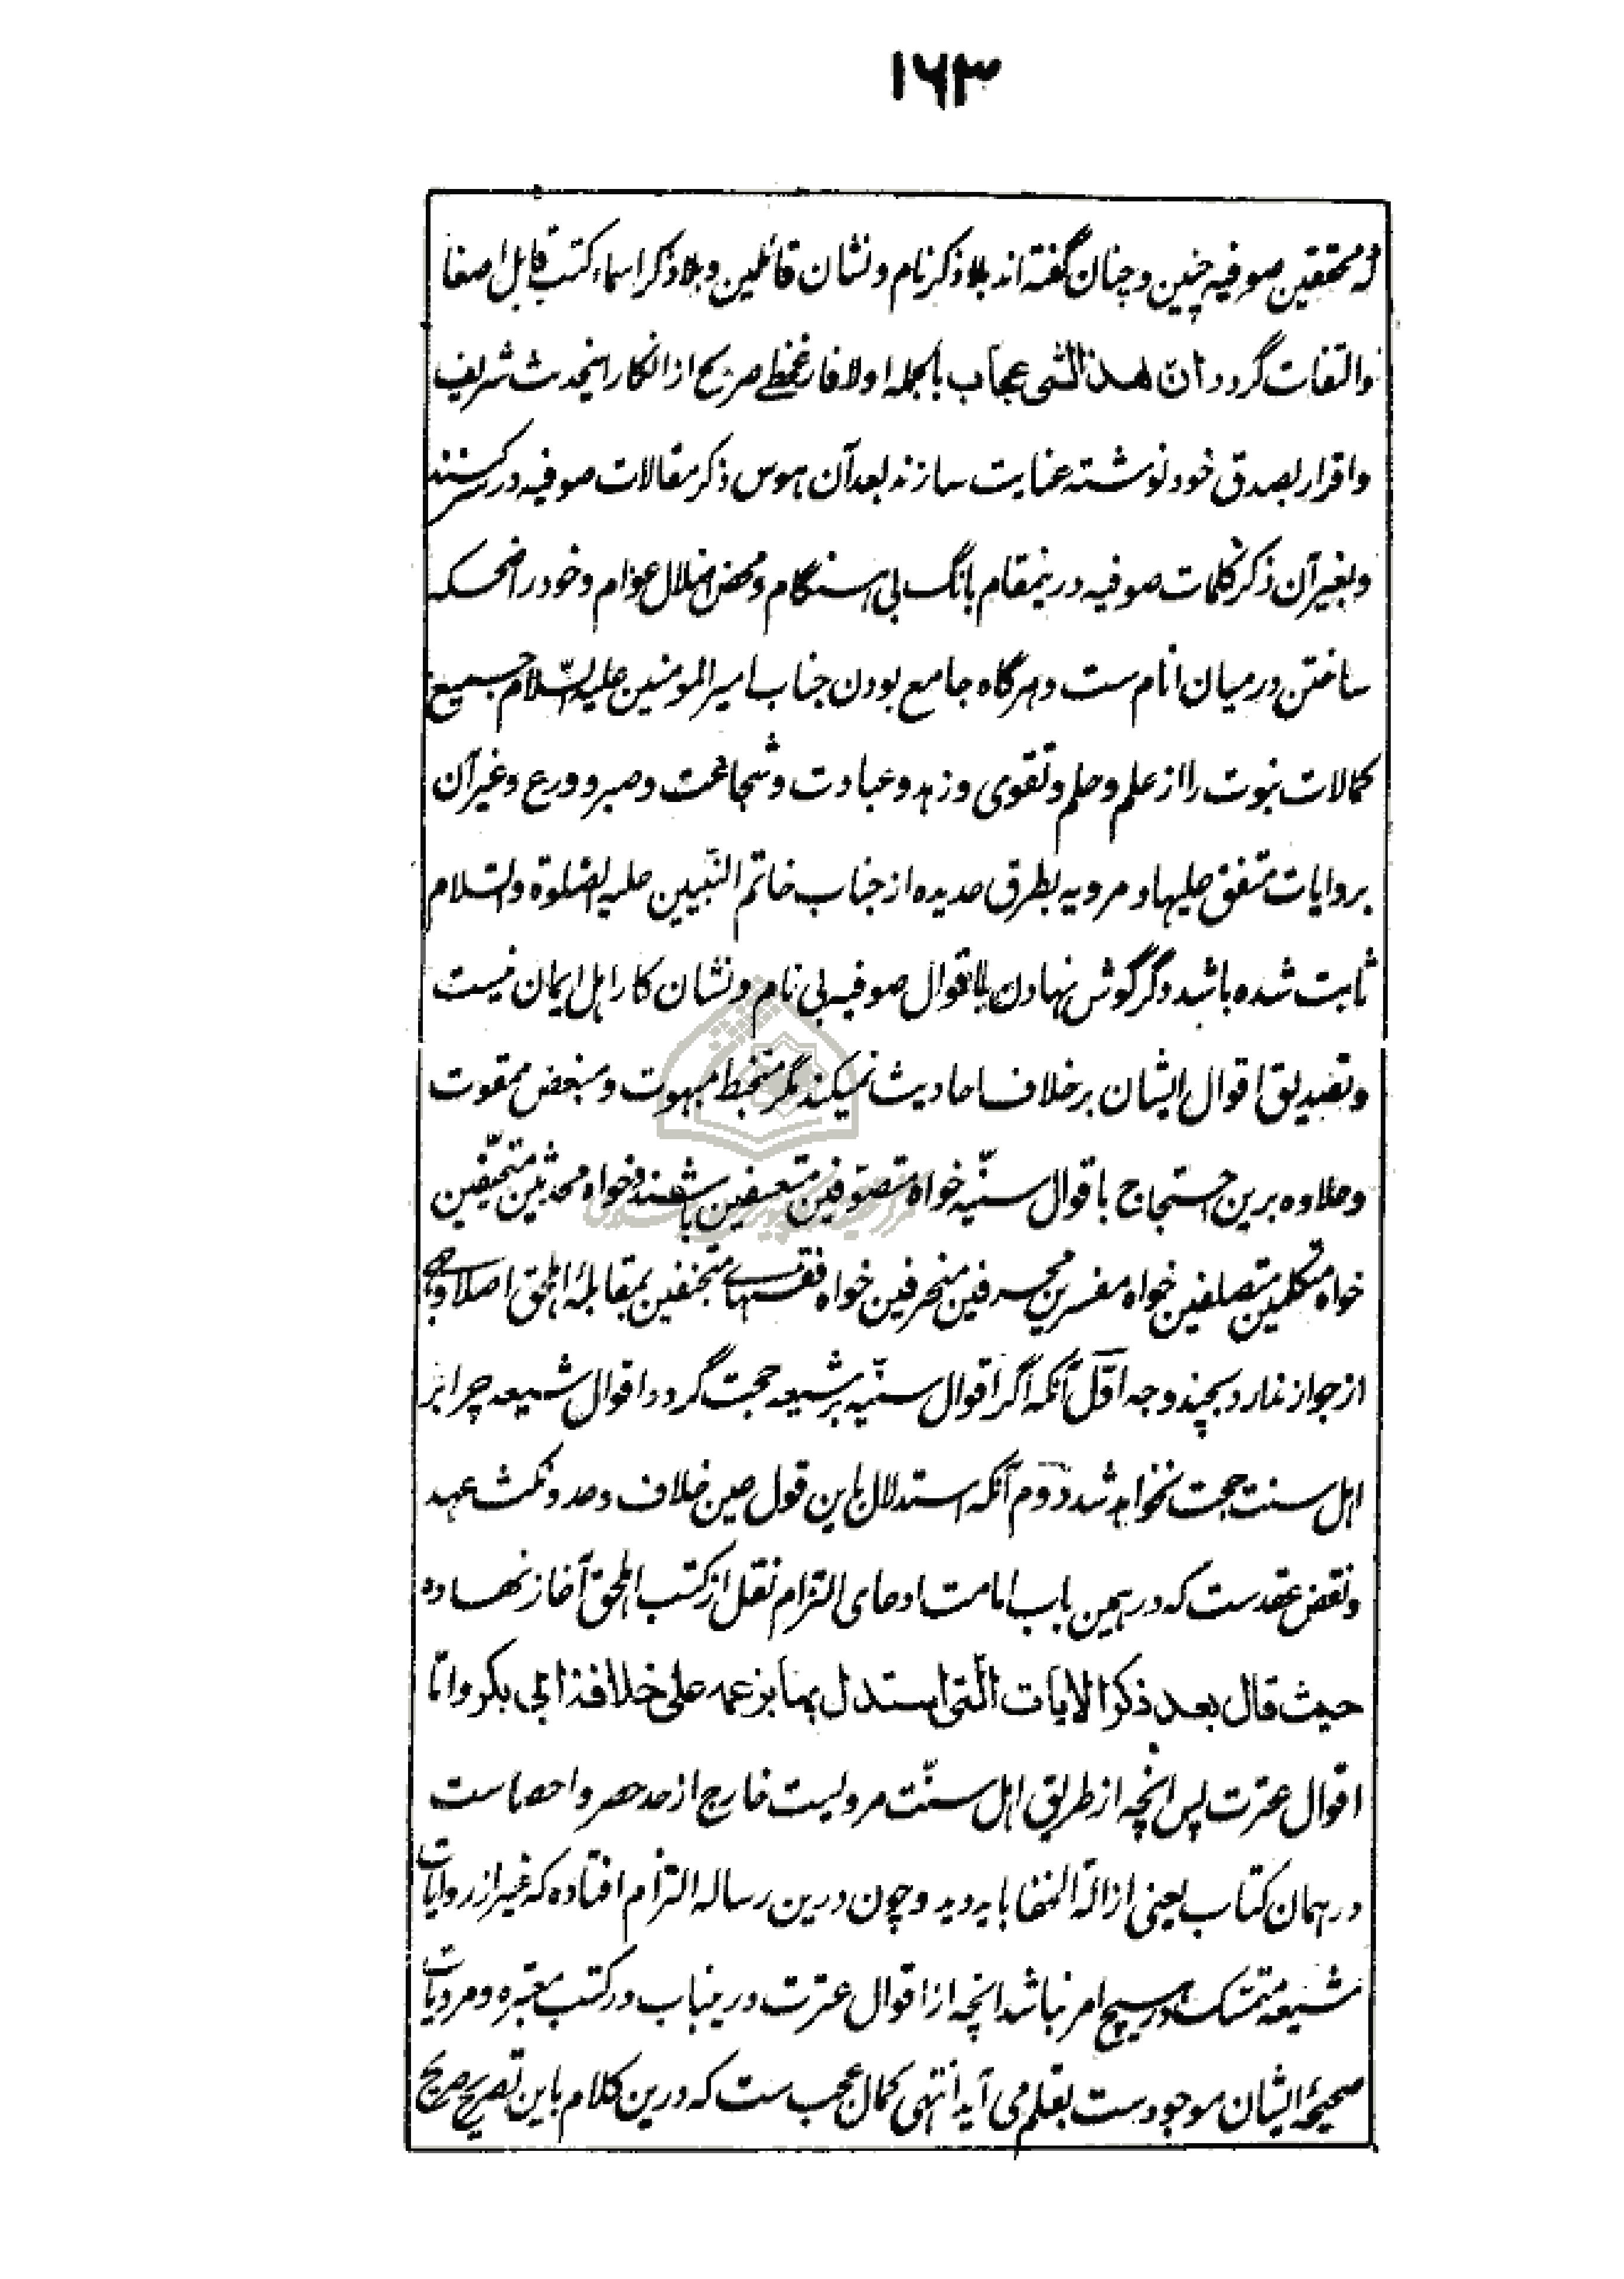 ۱۶۳
که محققین صوفیه چنین و چنان گفته اند بلا ذکر نام و نشان قائلین و بلا ذکر اسماء کتب قابل اصغا
والتفات گردد ان هذا لشی عجاب بالجمله اولا فارغخطی صریح از انکار اینحدیث شریف
و اقرار بصدق خود نوشته عنایت سازند بعد آن هوس ذکر مقالات صوفیه در سر کنند
و بغیر آن ذکر کلمات صوفیه درینمقام بانگ بی هنگام و محض اضلال عوام و خود را ضحکه
ساختن در میان انام ست و هر گاه جامع بودن جناب امیر المومنین علیه السّلام جمیع
کمالات نبوت را از علم و حلم و تقوی و زهد و عبادت و شجاعت و صبر و ورع و غیر آن
بروایات متفق علیها و مرویه بطرق عدیده از جناب خاتم النّبیین علیه الصّلوة والسّلام
ثابت شده باشد دگر گوش نهادن باقوال صوفیه بی نام و نشان کار اهل ایمان نیست
و تصدیق اقوال ایشان بر خلاف احادیث نمیکند مگر متخبط مبهوت و مبغض ممقوت
و علاوه برین احتجاج باقوال سنّیه خواه متصوّفین متعسفین باشند و خواه محدثین متحیّفین
خواه متکلمین متصلفین خواه مفسرین محرفین منحرفین خواه فقهای متجنفین بمقابلهٔ اهلحق اصلا وجهی
از جواز ندارد بچند وجه اوّل آنکه اگر اقوال سنّیه بر شیعه حجت گردد اقوال شیعه چرا بر
اهل سنت حجت نخواهد شد دوم آنکه استدلال باین قول عین خلاف وعد و نکث عهد
و نقض عقدست که در همین باب امامت ادعای التزام نقل از کتب اهلحق آغاز نهاده
حیث قال بعد ذکر الایات الّتی استدل بها بزعمه علی خلافة ابی بکر و امّا
اقوال عترت پس انچه از طریق اهل سنّت مرویست خارج از حد حصر و احصاست
در همان کتاب یعنی ازالة الخفا باید دید و چون درین رساله التزام افتاده که غیر از روایات
شیعه متمسّک در هیچ امر نباشد انچه از اقوال عترت درینباب در کتب معتبره و مرویات
صحیحهٔ ایشان موجودست بقلم می آید انتهی کمال عجب ست که درین کلام باین تصریح صریح